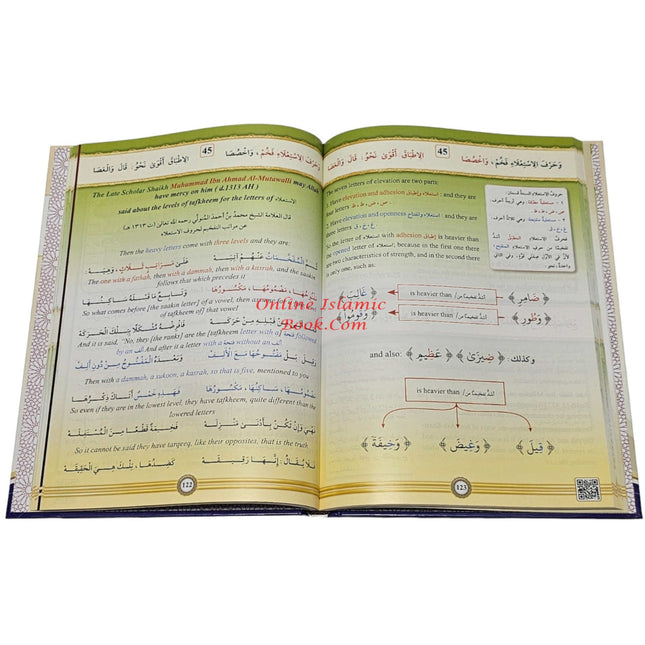 45 وَحَرْفَ الِاسْتِعْلَاءِ فَخِّمْ، وَاخْصُصَا الِاطْبَاقَ أَقْوَىٰ نَحْوُ: قَالَ وَالْعَصَا
The Late Scholar Shaikh Muhammad Ibn Ahmad Al-Mutawalli may Allah
have mercy on him ( d.1313 AH )
said about the levels of tafkheem for the letters of استعلاء:
قال العلامة الشيخ محمد بن أحمد المتولي (رحمه الله تعالى) (ت ١٣١٣ هـ)
عن مراتب التفخيم لحروف الاستعلاء:
Then the heavy letters come with three levels and they are:
ثُمَّ الْمُفَخَّمَاتُ عَنْهُمْ آتِيَهْ عَلَىٰ مَرَاتِبٍ ثَلَاثٍ، وَهِيَهْ:
The one with a fathah, then with a dammah, then with a kasrah, and the saakin
follows that which precedes it
مَفْتُوحُهَا، مَضْمُومُهَا، مَكْسُورُهَا وَتَابِعٌ مَا قَبْلَهُ سَاكِنُهَا
So what comes before [the saakin letter] of a vowel, then assume it [the
tafkheem of] that vowel
فَمَا أَتَىٰ مِنْ قَبْلِهِ مِنْ حَرَكَهْ فَافْرِضْهُ مُشَكَّلًا بِتِلْكَ الْحَرَكَهْ
And it is said, "No, they [the ranks] are the [tafkheem] letter with a فتحة followed
by an ألف And after it a letter with فتحة without an ألف
وَقِيلَ بَلْ مَفْتُوحُهَا مَعَ الْأَلِفْ وَبَعْدَهُ الْمَفْتُوحُ مِنْ دُونِ أَلِفْ
Then with a dammah, a sukoon, a kasrah, so that is five, mentioned to you
مَضْمُومُهَا، سَاكِنُهَا، مَكْسُورُهَا فَهَذِهِ خَمْسٌ أَتَاكَ ذِكْرُهَا
So even if they are in the lowest level, they have tafkheem, quite different than the
lowered letters
فَهْيَ وَإِنْ تَكُنْ بِأَدْنَىٰ مَنْزِلَهْ فَخِيمَةٌ قَطْعًا مِنَ الْمُسْتَفِلَهْ
So it cannot be said they have tarqeeq, like their opposites, that is the truth.
فَلَا يُقَالُ: إِنَّهَا رَقِيقَهْ كَضِدِّهَا، تِلْكَ هِيَ الْحَقِيقَهْ
122
45 وَحَرْفَ الِاسْتِعْلَاءِ فَخِّمْ، وَاخْصُصَا الِاطْبَاقَ أَقْوَىٰ نَحْوُ: قَالَ وَالْعَصَا
The seven letters of elevation are two parts:
Have elevation and adhesion استعلاء وإطباق, and they are
Have elevation and openness استعلاء وانفتاح and they are
three letters غ ، خ ، ق
So the letter of elevation with adhesion is heavier than
the opened letter of استعلاء; because in the first one there
are two characteristics of strength, and in the second there
is only one, such as:
حروف الاستعلاء السبعة قسمان:
﴿ ضَامِرٍ ﴾ is heavier than / أشدُّ تفخيمًا من ﴿ غَالِبَ ﴾
﴿ وَطُورِ ﴾ is heavier than / أشدُّ تفخيمًا من ﴿ وَقُومُوا ﴾
and also: ﴿ عَظِيمٌ ﴾ ﴿ ضِيزَىٰ ﴾ وكذلك:
is heavier than / أشدُّ تفخيمًا من
﴿ قِيلَ ﴾ ﴿ وَغِيضَ ﴾ ﴿ وَخِيفَةً ﴾
123
Online Islamic
Book.Com